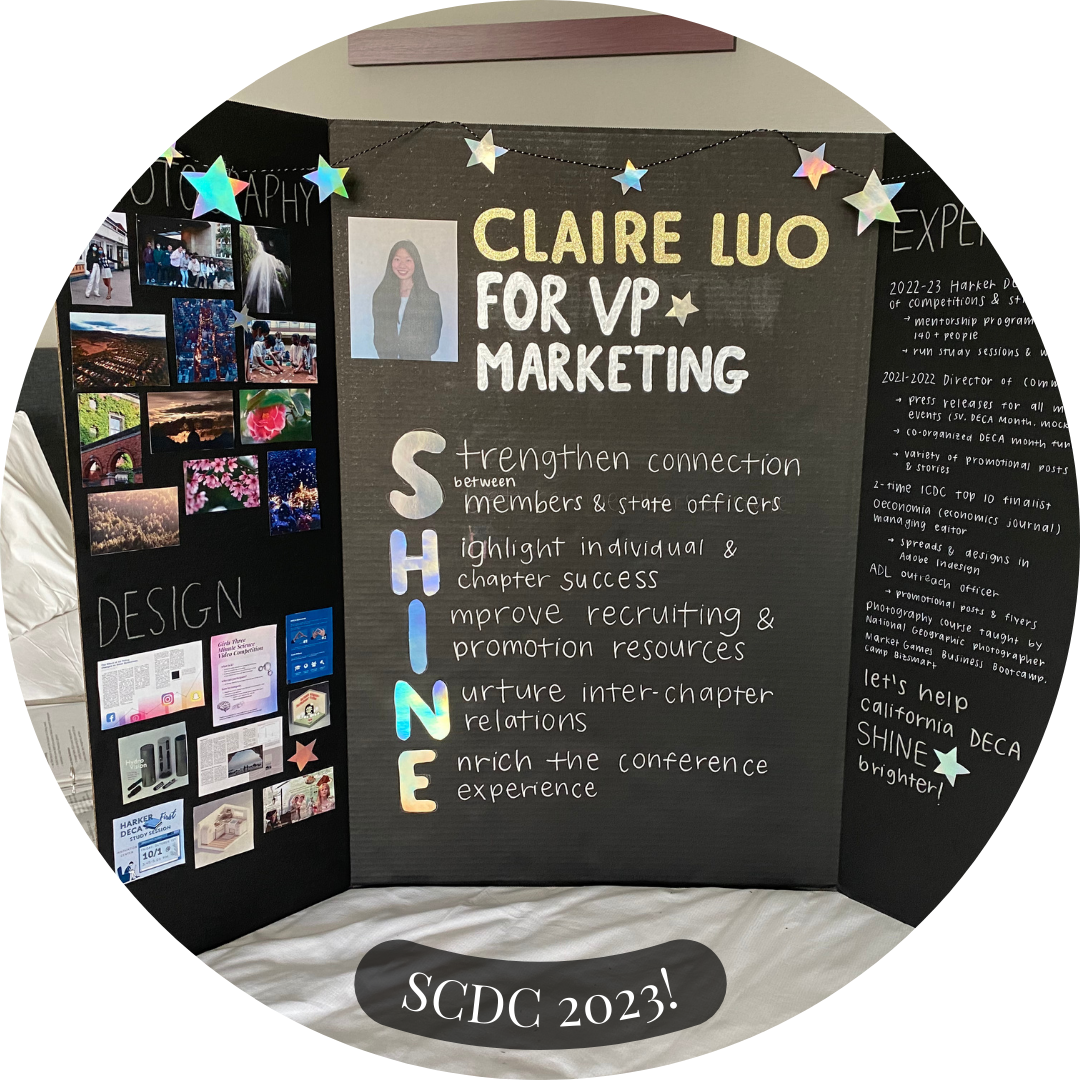 CLAIRE LUO
FOR VP
MARKETING
Strengthen connection
between
members & state officers
Highlight individual &
chapter success
Improve recruiting &
promotion resources
Nurture inter-chapter
relations
Enrich the conference
experience
DESIGN
Girls Three
Minute Science
Video Competition
HARKER
DECA
First
STUDY SESSION
10/1 @
2022-23 Harker
of competitions &
→ mentorship program
140+ people
→ run study sessions &
2021-2022 Director of
→ press releases for all
events (SV. DECA Month, mock
→ co-organized DECA month
→ variety of promotional posts
& stories
2-time ICDC top 10 finalist
Oeconomia (economics journal)
managing editor
→ spreads & designs in
Adobe Indesign
ADL outreach officer
→ promotional posts & flyers
photography course taught by
National Geographic photographer
Market Games Business Bootcamp.
Camp Bizsmart
let's help
california DECA
SHINE
brighter!
SCDC 2023!